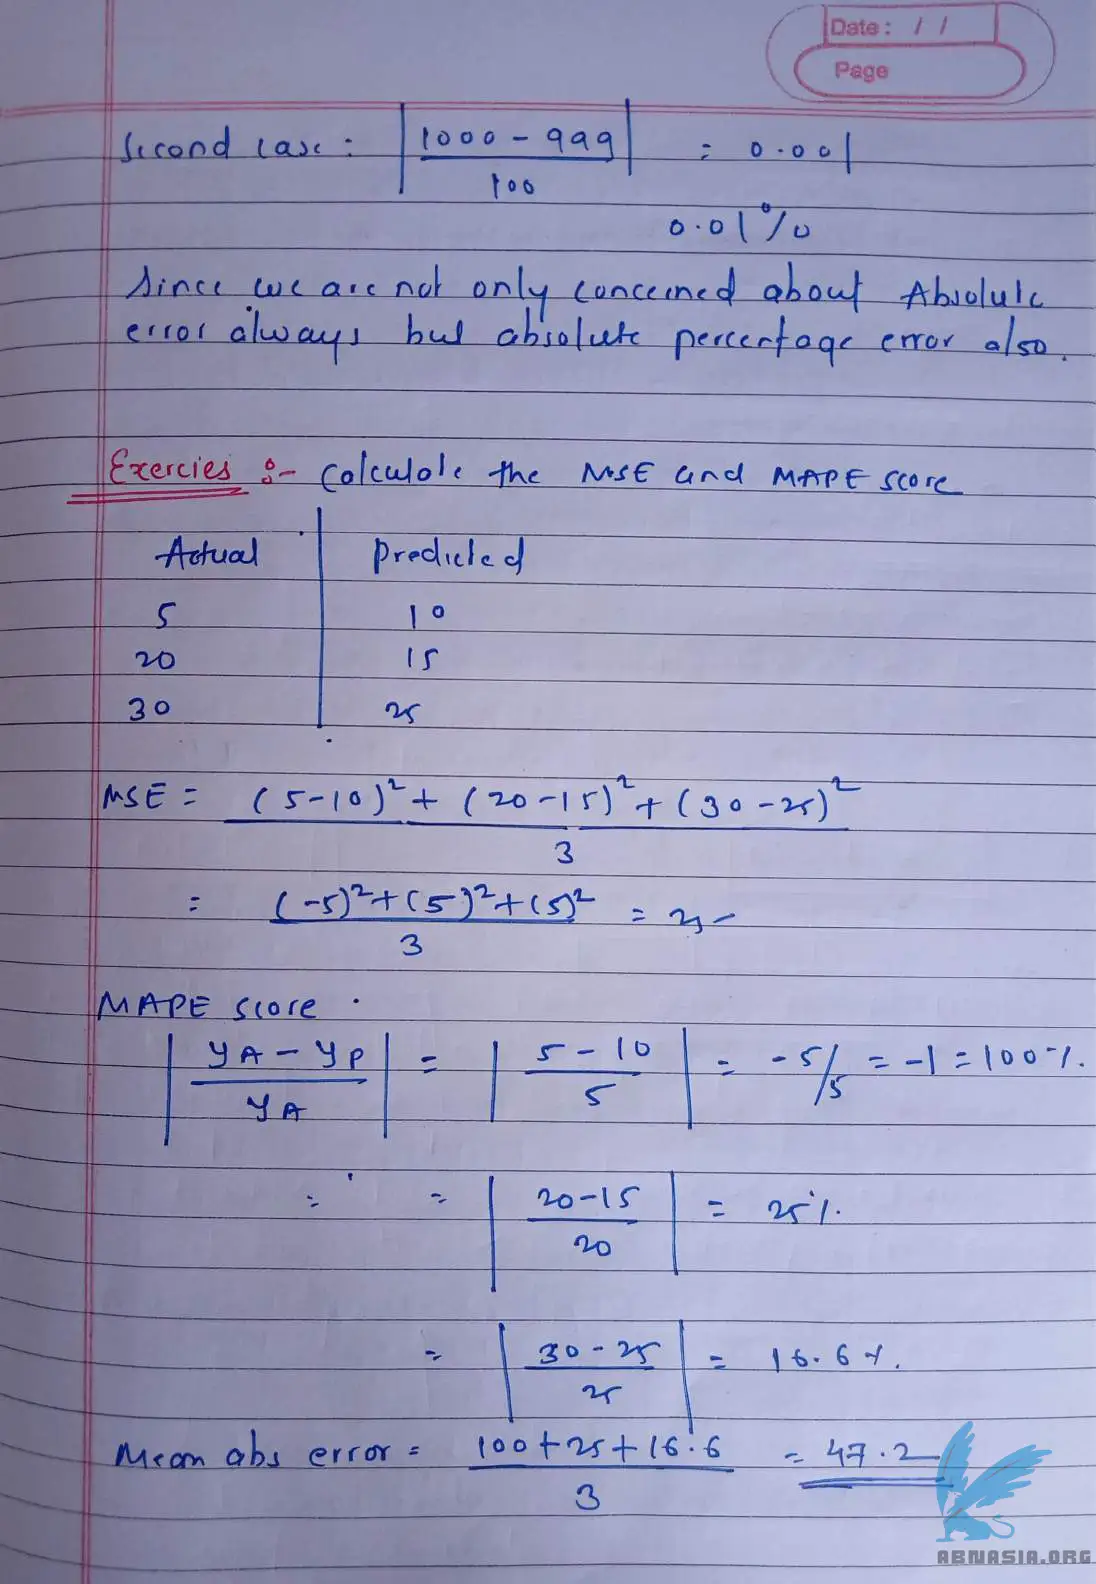 Date: / /
Page
Second case: | 1000 - 999 / 100 | = 0.001
0.01%
Since we are not only concerned about Absolute
error always but absolute percentage error also.
Exercies :- Calculate the MSE and MAPE score
Actual | Predicted
5 | 10
20 | 15
30 | 25
MSE = (5-10)² + (20-15)² + (30-25)² / 3
= (-5)² + (5)² + (5)² / 3 = 25
MAPE score
| yA - yP / yA | = | 5 - 10 / 5 | = -5/5 = -1 = 100%.
= = | 20-15 / 20 | = 25%.
= | 30-25 / 25 | = 16.6%.
Mean abs error = 100+25+16.6 / 3 = 47.2
ABNASIA.ORG